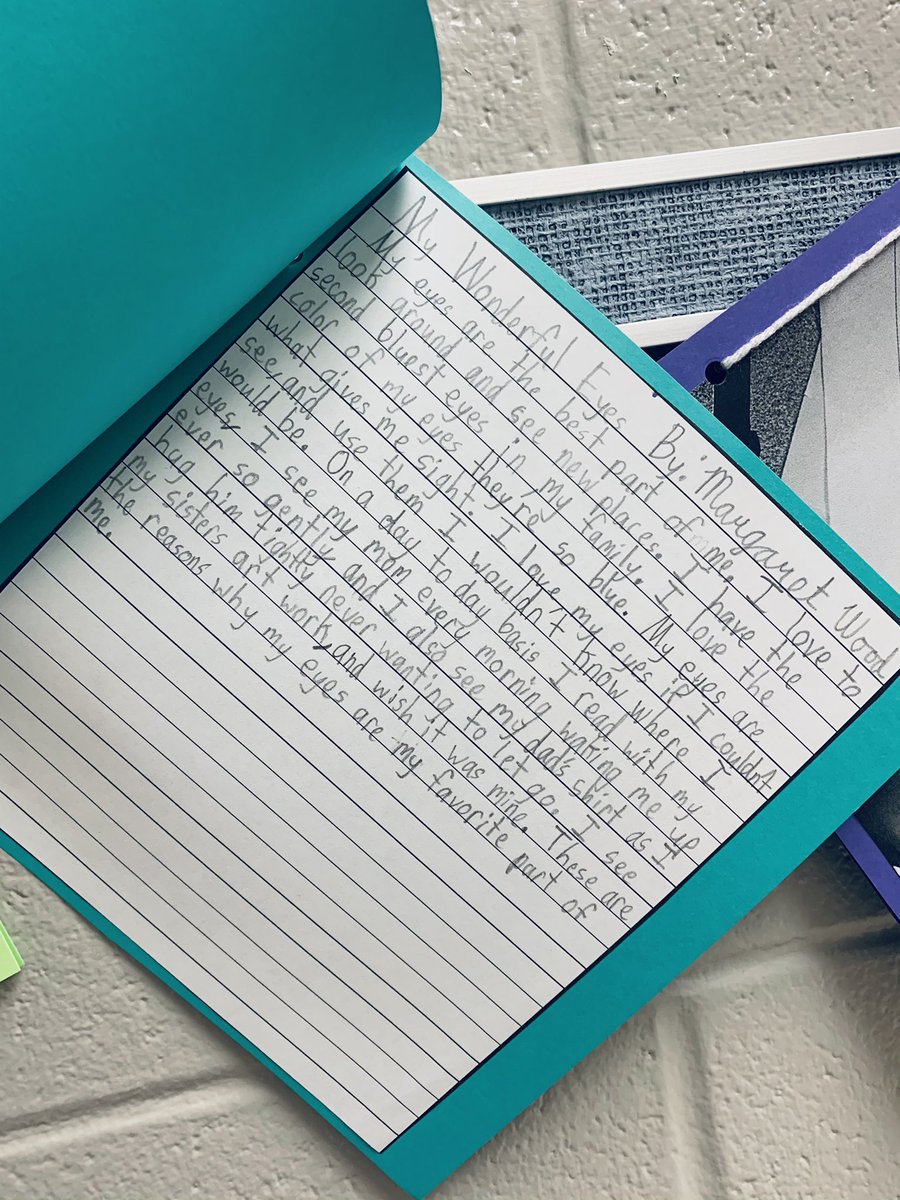 My Wonderful Eyes By: Margaret Wood
My eyes are the best part of me. I love to
look around and see new places. I have the
second bluest eyes in my family. I love the
color of my eyes they're so blue. My eyes are
what gives me sight. I love my eyes if I couldn't
see and use them I wouldn't know where I
would be. On a day to day basis I read with my
eyes, I see my mom every morning waking me up
ever so gently, and I also see my dad's shirt as I
hug him tightly never wanting to let go. I see
my sisters art work, and wish it was mine. These are
the reasons why my eyes are my favorite part of
me.